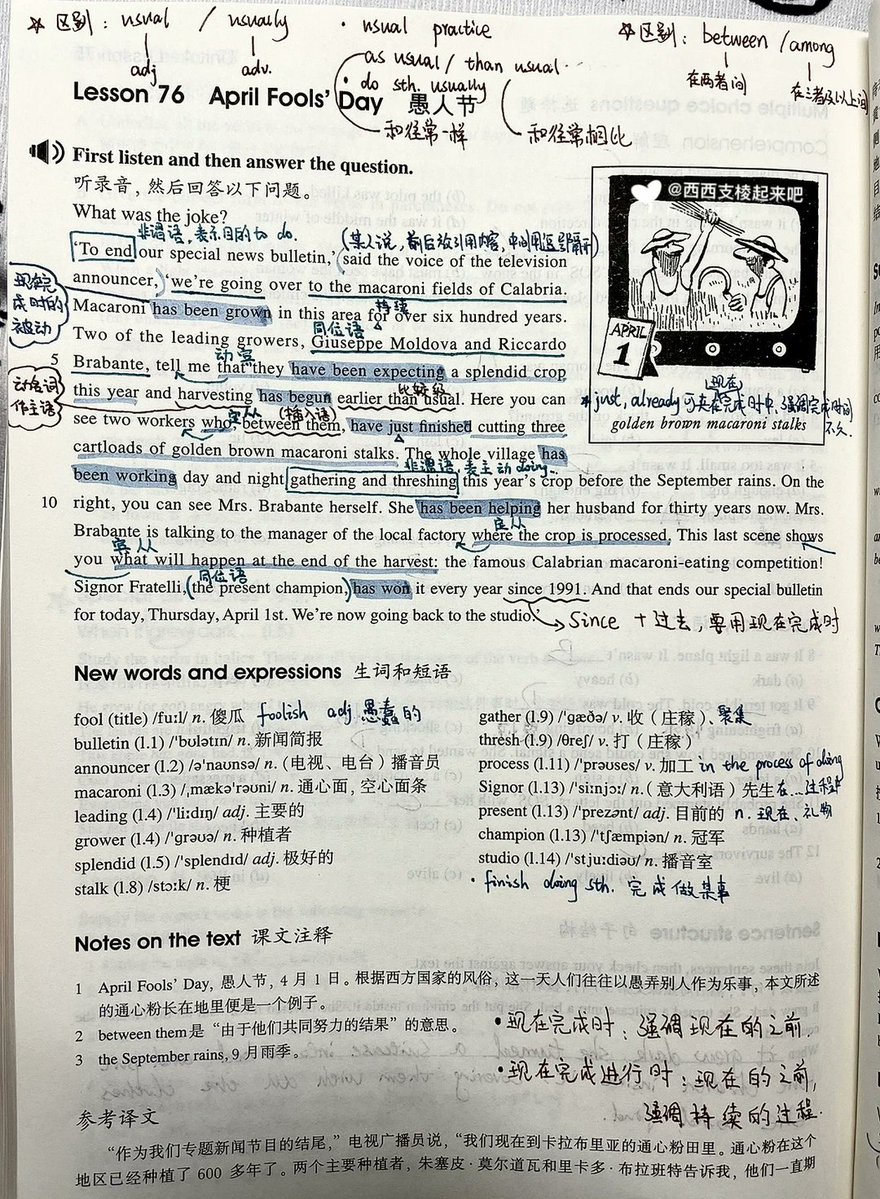 ☆ 区别: usual / usually · usual practice ☆区别: between / among
adj adv. as usual / than usual. 在两者间 在三者及以上间
· do sth. usually
Lesson 76 April Fools' Day 愚人节
和往常一样 和往常相比
First listen and then answer the question.
听录音，然后回答以下问题。
@西西支棱起来吧
What was the joke?
非谓语,表示目的 to do. (某人说, 前后放引用内容, 中间用逗号隔开)
'To end our special news bulletin,' said the voice of the television
announcer, 'we're going over to the macaroni fields of Calabria.
现在完成时的被动
持续
Macaroni has been grown in this area for over six hundred years.
同位语
Two of the leading growers, Giuseppe Moldova and Riccardo
APRIL
1
动宾
5 Brabante, tell me that they have been expecting a splendid crop
动名词作主语
比较级
this year and harvesting has begun earlier than usual. Here you can
现在
* just, already 可夹在完成时中, 强调完成时间不久.
宾从 (插入语)
see two workers who, between them, have just finished cutting three
golden brown macaroni stalks
cartloads of golden brown macaroni stalks. The whole village has
非谓语,表主动 doing.
been working day and night gathering and threshing this year's crop before the September rains. On the
10 right, you can see Mrs. Brabante herself. She has been helping her husband for thirty years now. Mrs.
定从
Brabante is talking to the manager of the local factory where the crop is processed. This last scene shows
宾从
you what will happen at the end of the harvest: the famous Calabrian macaroni-eating competition!
同位语
Signor Fratelli, (the present champion,) has won it every year since 1991. And that ends our special bulletin
for today, Thursday, April 1st. We're now going back to the studio.'
Since +过去, 要用现在完成时
New words and expressions 生词和短语
fool (title) /fuːl/ n. 傻瓜 foolish adj. 愚蠢的
bulletin (l.1) /ˈbʊlətɪn/ n. 新闻简报
announcer (l.2) /əˈnaʊnsə/ n.（电视、电台）播音员
macaroni (l.3) /ˌmækəˈrəʊni/ n. 通心面，空心面条
leading (l.4) /ˈliːdɪŋ/ adj. 主要的
grower (l.4) /ˈɡrəʊə/ n. 种植者
splendid (l.5) /ˈsplendɪd/ adj. 极好的
stalk (l.8) /stɔːk/ n. 梗
gather (l.9) /ˈɡæðə/ v. 收（庄稼）、聚集
thresh (l.9) /θreʃ/ v. 打（庄稼）
process (l.11) /ˈprəʊses/ v. 加工 in the process of doing
Signor (l.13) /ˈsiːnjɔː/ n.（意大利语）先生 在...过程中
present (l.13) /ˈprezənt/ adj. 目前的 n. 现在、礼物
champion (l.13) /ˈtʃæmpiən/ n. 冠军
studio (l.14) /ˈstjuːdiəʊ/ n. 播音室
· finish doing sth. 完成做某事
Notes on the text 课文注释
1 April Fools' Day, 愚人节，4 月 1 日。根据西方国家的风俗，这一天人们往往以愚弄别人作为乐事，本文所述
的通心粉长在地里便是一个例子。
2 between them 是“由于他们共同努力的结果”的意思。
3 the September rains, 9 月雨季。
• 现在完成时: 强调现在的之前.
• 现在完成进行时: 现在的之前,
强调持续的过程.
参考译文
“作为我们专题新闻节目的结尾，”电视广播员说，“我们现在到卡拉布里亚的通心粉田里。通心粉在这个
地区已经种植了 600 多年了。两个主要种植者，朱塞皮·莫尔道瓦和里卡多·布拉班特告诉我，他们一直期